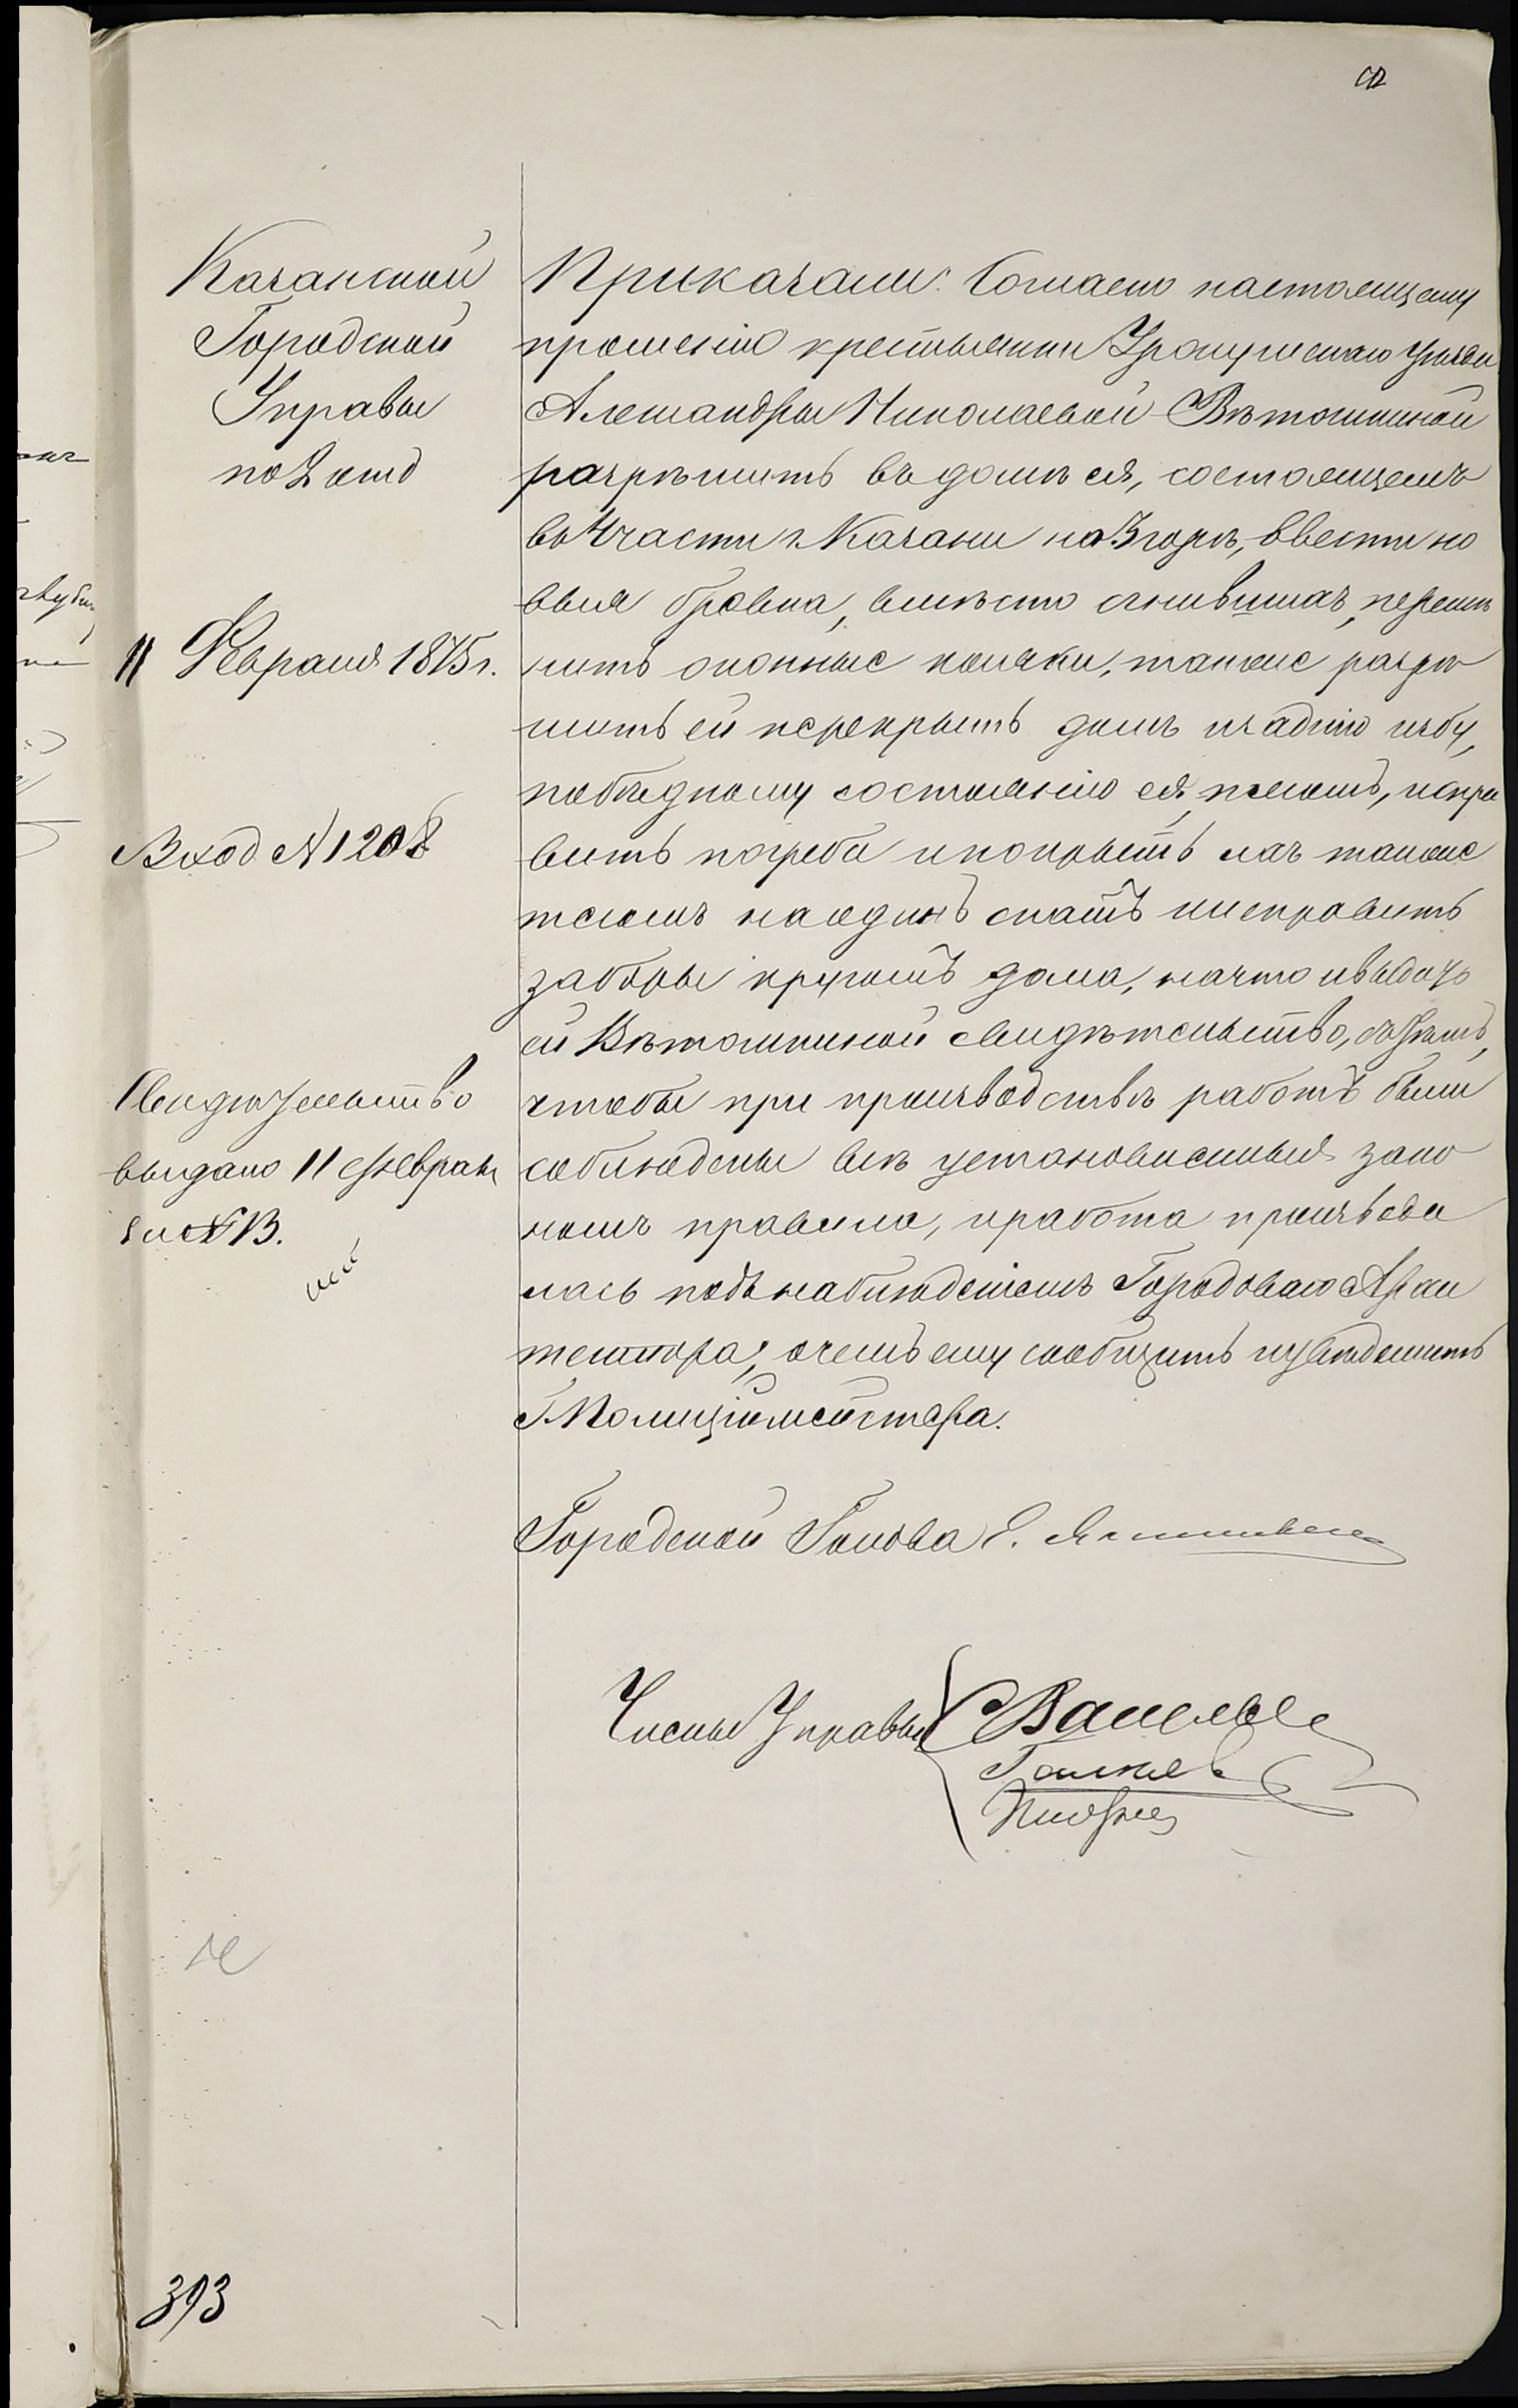 Казанской
Городской
Управы
по 2 отд
11 Февраля 1875 г.
Вход № 1208
Свидѣтельство
выдано 11 Февраля
за № 13.
393
Приказали: Согласно настоящему
прошенію крестьянки Уржумскаго уѣзда
Александры Николаевой Вѣтошкиной
разрѣшить въ домѣ ея, состоящемъ
во 4 части г. Казани на 3 горѣ, ввести но
выя бревна, вмѣсто сгнившихъ, перемѣ
нить оконные косяки, также разрѣ
шить ей перекрыть домъ и заднюю избу,
по бѣдному состоянію ея, тесомъ, испра
вить погреба и покрыть ихъ также
тесомъ на одинъ скатъ и исправить
заборы кругомъ дома, на что и выдать
ей Вѣтошкиной свидѣтельство, съ тѣмъ,
чтобы при производствѣ работъ были
соблюдены всѣ установленныя зако
номъ правила, и работа производи
лась подъ наблюденіемъ Городоваго Архи
тектора, о чемъ ему сообщить и увѣдомить
Г. Полиціймейстера.
Городской Голова Е.
Члены Управы